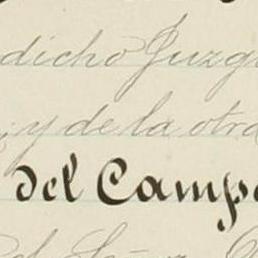 dicho Juzg
y de la otra
del Camp